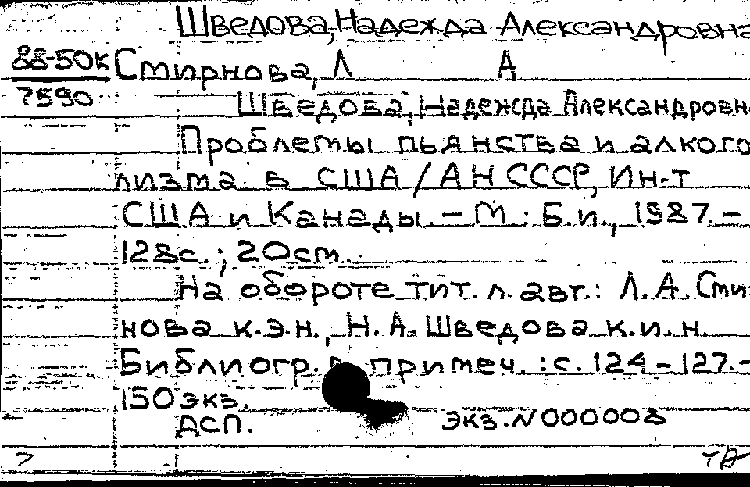 Шведова, Надежда Александровна
88-50к Смирнова, Л А
7590 Шведова, Надежда Александровн
Проблемы пьянства и алкого
лизма в США / АН СССР, Ин-т
США и Канады. – М : Б.и., 1987. –
128с. ; 20см.
На обороте тит. л. авт.: Л. А. Сми
нова к.э.н., Н. А. Шведова к.и.н.
Библиогр. в примеч. : с. 124 – 127. –
150 экз.
ДСП. экз. N 000008